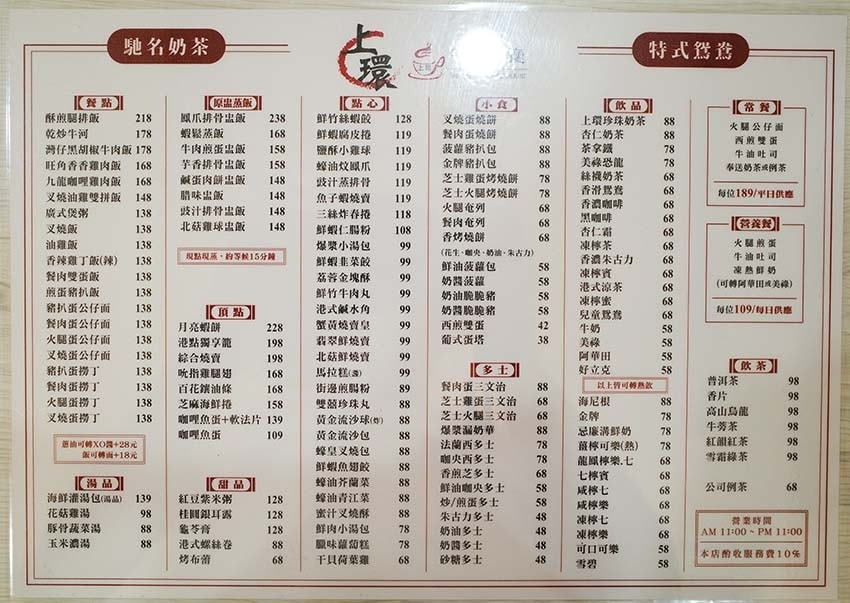 馳名奶茶
上環
上環
特式鴛鴦
餐點
酥煎腿排飯 218
乾炒牛河 178
灣仔黑胡椒牛肉飯 178
旺角香香雞肉飯 168
九龍咖哩雞肉飯 168
叉燒油雞雙拼飯 148
廣式煲粥 138
叉燒飯 138
油雞飯 138
香辣雞丁飯(辣) 138
餐肉雙蛋飯 138
煎蛋豬扒飯 138
豬扒蛋公仔面 138
餐肉蛋公仔面 138
火腿蛋公仔面 138
叉燒蛋公仔面 138
豬扒蛋撈丁 138
餐肉蛋撈丁 138
火腿蛋撈丁 138
叉燒蛋撈丁 138
蔥油可轉XO醬+28元
飯可轉面+18元
湯品
海鮮灌湯包(湯品) 139
花菇雞湯 98
豚骨蔬菜湯 88
玉米濃湯 88
原盅蒸飯
鳳爪排骨盅飯 238
蝦鬆蒸飯 168
牛肉煎蛋盅飯 158
芋香排骨盅飯 158
鹹蛋肉餅盅飯 148
臘味盅飯 158
豉汁排骨盅飯 148
北菇雞球盅飯 148
現點現蒸，約等候15分鐘
頂點
月亮蝦餅 228
港點獨享籠 198
綜合燒賣 198
吮指雞腿翅 168
百花鑲油條 168
芝麻海鮮捲 158
咖哩魚蛋+軟法片 139
咖哩魚蛋 109
甜品
紅豆紫米粥 128
桂圓銀耳露 128
龜苓膏 128
港式螺絲卷 88
烤布蕾 68
點心
鮮竹絲蝦餃 128
鮮蝦腐皮捲 119
鹽酥小雞球 119
蠔油炆鳳爪 119
豉汁蒸排骨 119
魚子蝦燒賣 119
三絲炸春捲 118
鮮蝦仁腸粉 108
爆漿小湯包 99
鮮蝦韭菜餃 99
荔蓉金塊酥 99
鮮竹牛肉丸 99
港式鹹水角 99
蟹黃燒賣皇 99
翡翠鮮燒賣 99
北菇鮮燒賣 99
馬拉糕(獨) 99
街邊煎腸粉 89
雙囍珍珠丸 88
黃金流沙球(炸) 88
黃金流沙包 88
蠔皇叉燒包 88
鮮蝦魚翅餃 88
蠔油芥蘭菜 88
蠔油青江菜 88
蜜汁叉燒酥 88
鮮肉小湯包 78
臘味蘿蔔糕 78
干貝荷葉雞 68
小食
叉燒蛋燒餅 88
餐肉蛋燒餅 88
菠蘿豬扒包 88
金牌豬扒包 88
芝士雞蛋烤燒餅 78
芝士火腿烤燒餅 78
火腿奄列 68
餐肉奄列 68
香烤燒餅 68
(花生．咖央．奶油．朱古力)
鮮油菠蘿包 58
奶醬菠蘿包 58
奶油脆脆豬 58
奶醬脆脆豬 58
西煎雙蛋 42
葡式蛋塔 38
多士
餐肉蛋三文治 88
芝士雞蛋三文治 88
芝士火腿三文治 88
爆漿漏奶華 88
法蘭西多士 78
咖央西多士 78
香煎芝多士 68
鮮油咖央多士 58
炒/煎蛋多士 58
朱古力多士 48
奶油多士 48
奶醬多士 48
砂糖多士 48
飲品
上環珍珠奶茶 88
杏仁奶茶 78
茶拿鐵 78
美祿恐龍 78
絲襪奶茶 68
香滑鴛鴦 68
香濃咖啡 68
黑咖啡 68
杏仁霜 68
凍檸茶 68
香濃朱古力 68
凍檸賓 68
港式涼茶 68
凍檸蜜 68
兒童鴛鴦 68
牛奶 58
美祿 58
阿華田 58
好立克 58
以上皆可轉熱飲
海尼根 88
金牌 88
忌廉溝鮮奶 88
薑檸可樂(熱) 78
龍鳳檸樂.七 68
七檸賓 68
咸檸七 68
咸檸樂 68
凍檸七 68
凍檸樂 68
可口可樂 58
雪碧 58
常餐
火腿公仔面
西煎雙蛋
牛油吐司
奉送奶茶或例茶
每位189/平日供應
營養餐
火腿煎蛋
牛油吐司
凍熱鮮奶
(可轉阿華田或美祿)
每位109/每日供應
飲茶
普洱茶 98
香片 98
高山烏龍 98
牛蒡茶 98
紅韻紅茶 98
雪霜綠茶 98
公司例茶 68
營業時間
AM 11:00 ~ PM 11:00
本店酌收服務費10%